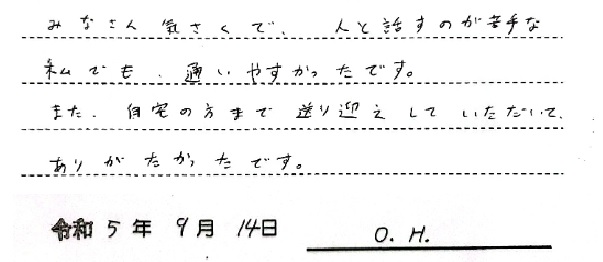 みなさん気さくで、人と話すのが苦手な
私でも、通いやすかったです。
また、自宅の方まで送り迎えしていただいて、
ありがたかったです。
令和5年9月14日 O.H.